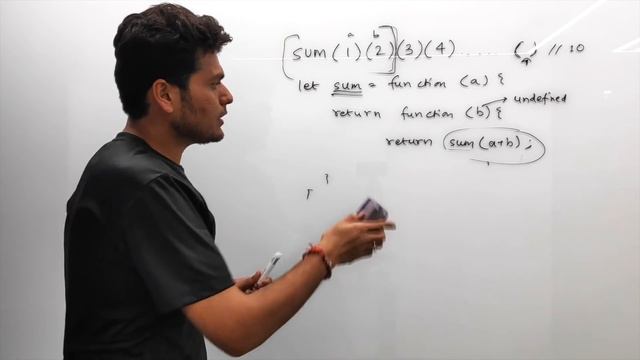 a b
sum(1)(2)(3)(4) .... ( ) // 10
let sum = function (a) {
return function (b) { undefined
return sum(a+b);
}